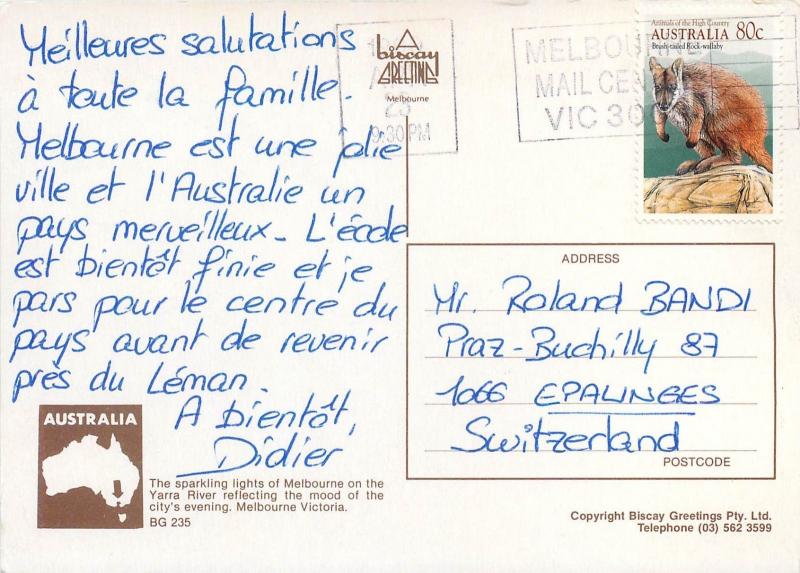 Meilleures salutations
à toute la famille.
Melbourne est une jolie
ville et l'Australie un
pays merveilleux. L'école
est bientôt finie et je
pars pour le centre du
pays avant de revenir
près du Léman.
A bientôt,
Didier
AUSTRALIA
The sparkling lights of Melbourne on the
Yarra River reflecting the mood of the
city's evening. Melbourne Victoria.
BG 235
A
biscay
GREETING
Melbourne
9:30 PM
MELBOURNE
MAIL CEN
VIC 300
Animals of the High Country
AUSTRALIA 80c
Brush-tailed Rock-wallaby
ADDRESS
Mr. Roland BANDI
Praz-Buchilly 87
1066 EPALINGES
Switzerland
POSTCODE
Copyright Biscay Greetings Pty. Ltd.
Telephone (03) 562 3599